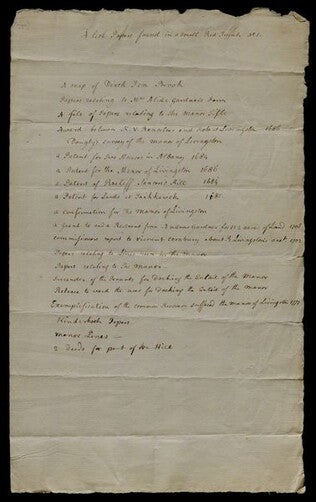 A list Papers found in a small Red Trunk
A map of Dutch
Papers relating to Mrs Alida Gardners Farm
A file of Papers relating to the Manor Title
Award between K. V. Renselaer and Robt Livingston 1686
survey of the manor of Livingston
a Patent for two Houses in Albany 1684
a Patent for the Manor of Livingston 1686
a Patent of Roeloff Jansens Kill 1684
a Patent for Lands in Taakkanick 1685
a confirmation for the Manor of Livingston
a grant to and a Release from Andries Gardner for acres of Land
commissioners report to Viscount about R Livingstons acct.
Papers relating to in the Manor
Papers relating to the Manor
Surrender of the for Docking the Entail of the Manor
Release to the uses for Docking the Entail of the Manor
Exemplification of the common Recovery suffered the manor of Livingston 1771
Kinderhook Papers
Manor Lines
2 Deeds for part of the Kill